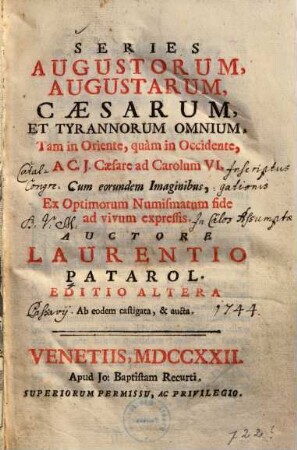 SERIES
AUGUSTORUM,
AUGUSTARUM,
CÆSARUM,
ET TYRANNORUM OMNIUM,
Tam in Oriente, quàm in Occidente,
A C. J. Cæsare ad Carolum VI. Inscriptus
Catal. Congre. Cum eorundem Imaginibus, gationis
Ex Optimorum Numismatum fide
B. V. M. ad vivum expressis. In Cælos Assumptæ
AUCTORE
LAURENTIO
PATAROL.
EDITIO ALTERA
Passavij. Ab eodem castigata, & aucta. 1744.
VENETIIS, MDCCXXII.
Apud Jo: Baptistam Recurti.
SUPERIORUM PERMISSU, AC PRIVILEGIO.